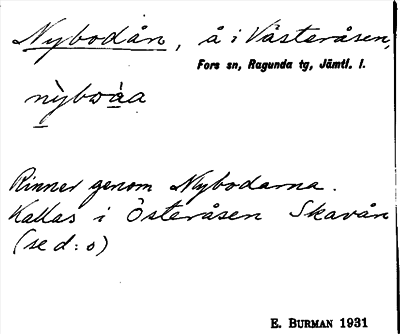 Nybodån, å i Västeråsen,
Fors sn, Ragunda tg, Jämtl. l.
nỳbωàa
Rinner genom Nybodarna.
Kallas i Österåsen Skavån
(se d:o)
E. BURMAN 1931